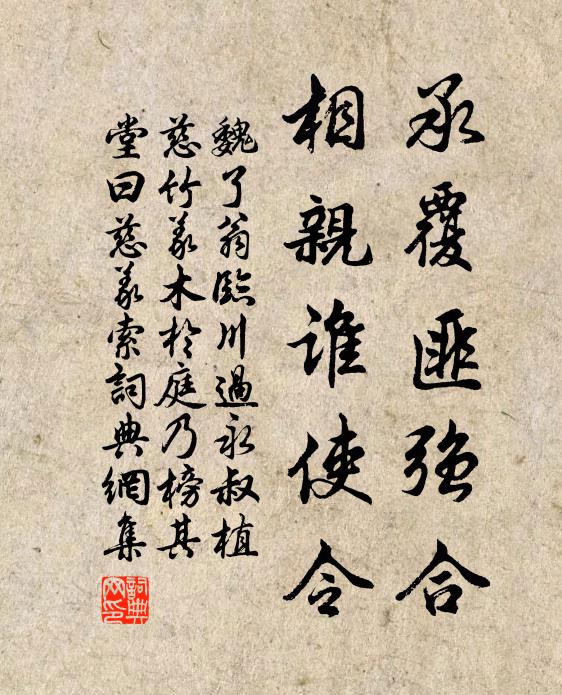 承覆匪強合
相親誰使令
魏了翁臨川過永叔植
慈竹義木於庭乃榜其
堂曰慈義索詞典網集
詞典
网印